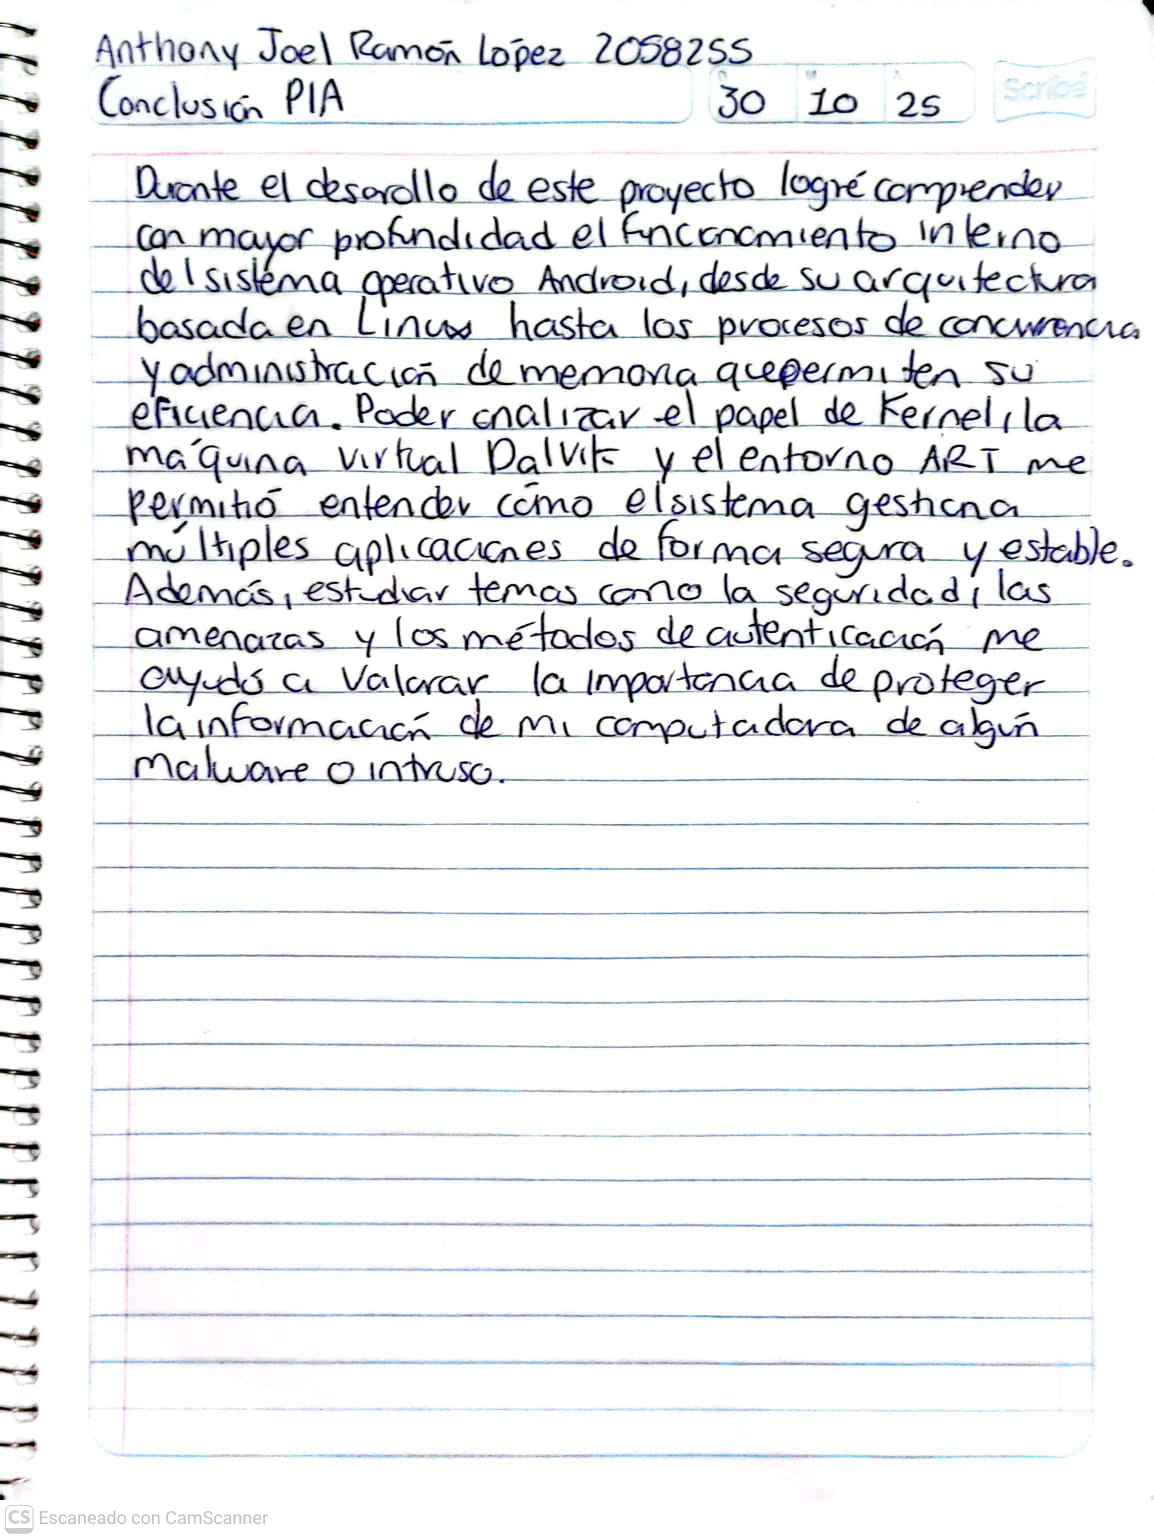 Anthony Joel Ramón López 2058255
Conclusión PIA
D M A
30 10 25
Scribe
Durante el desarollo de este proyecto logré comprender
con mayor profundidad el funcionamiento interno
del sistema operativo Android, desde su arquitectura
basada en Linux hasta los procesos de concurrencia
y administración de memoria que permiten su
eficiencia. Poder analizar el papel de Kernel, la
máquina virtual Dalvik y el entorno ART me
permitió entender cómo el sistema gestiona
múltiples aplicaciones de forma segura y estable.
Además, estudiar temas como la seguridad, las
amenazas y los métodos de autenticación me
ayudó a valorar la importancia de proteger
la información de mi computadora de algún
malware o intruso.
CS Escaneado con CamScanner